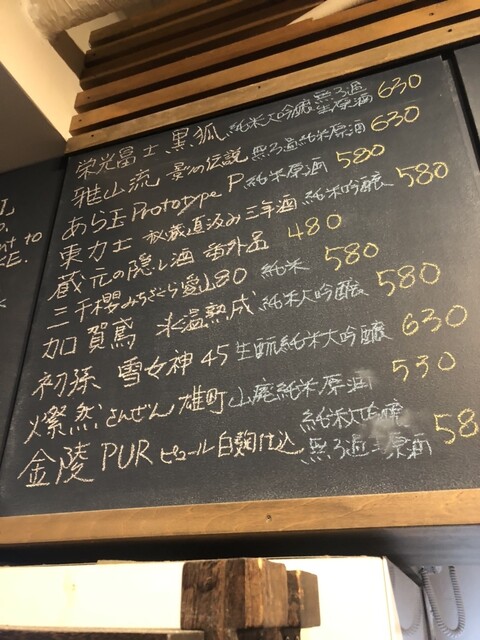 栄光冨士 黒狐 純米大吟醸 無ろ過生原酒 630
雅山流 影の伝説 無ろ過純米原酒 630
あら玉 Prototype P 純米原酒 580
東力士 秘蔵直汲み三年酒 純米吟醸 580
蔵元の隠し酒 番外品 480
三千櫻 みちざくら 愛山80 純米 580
加賀鳶 氷温熟成 純米大吟醸 580
初孫 雪女神45 生酛純米大吟醸 630
燦然 さんぜん 雄町 山廃純米原酒 530
金陵 PUR ピュール 白麹仕込 無ろ過 原酒 58
to
KE.